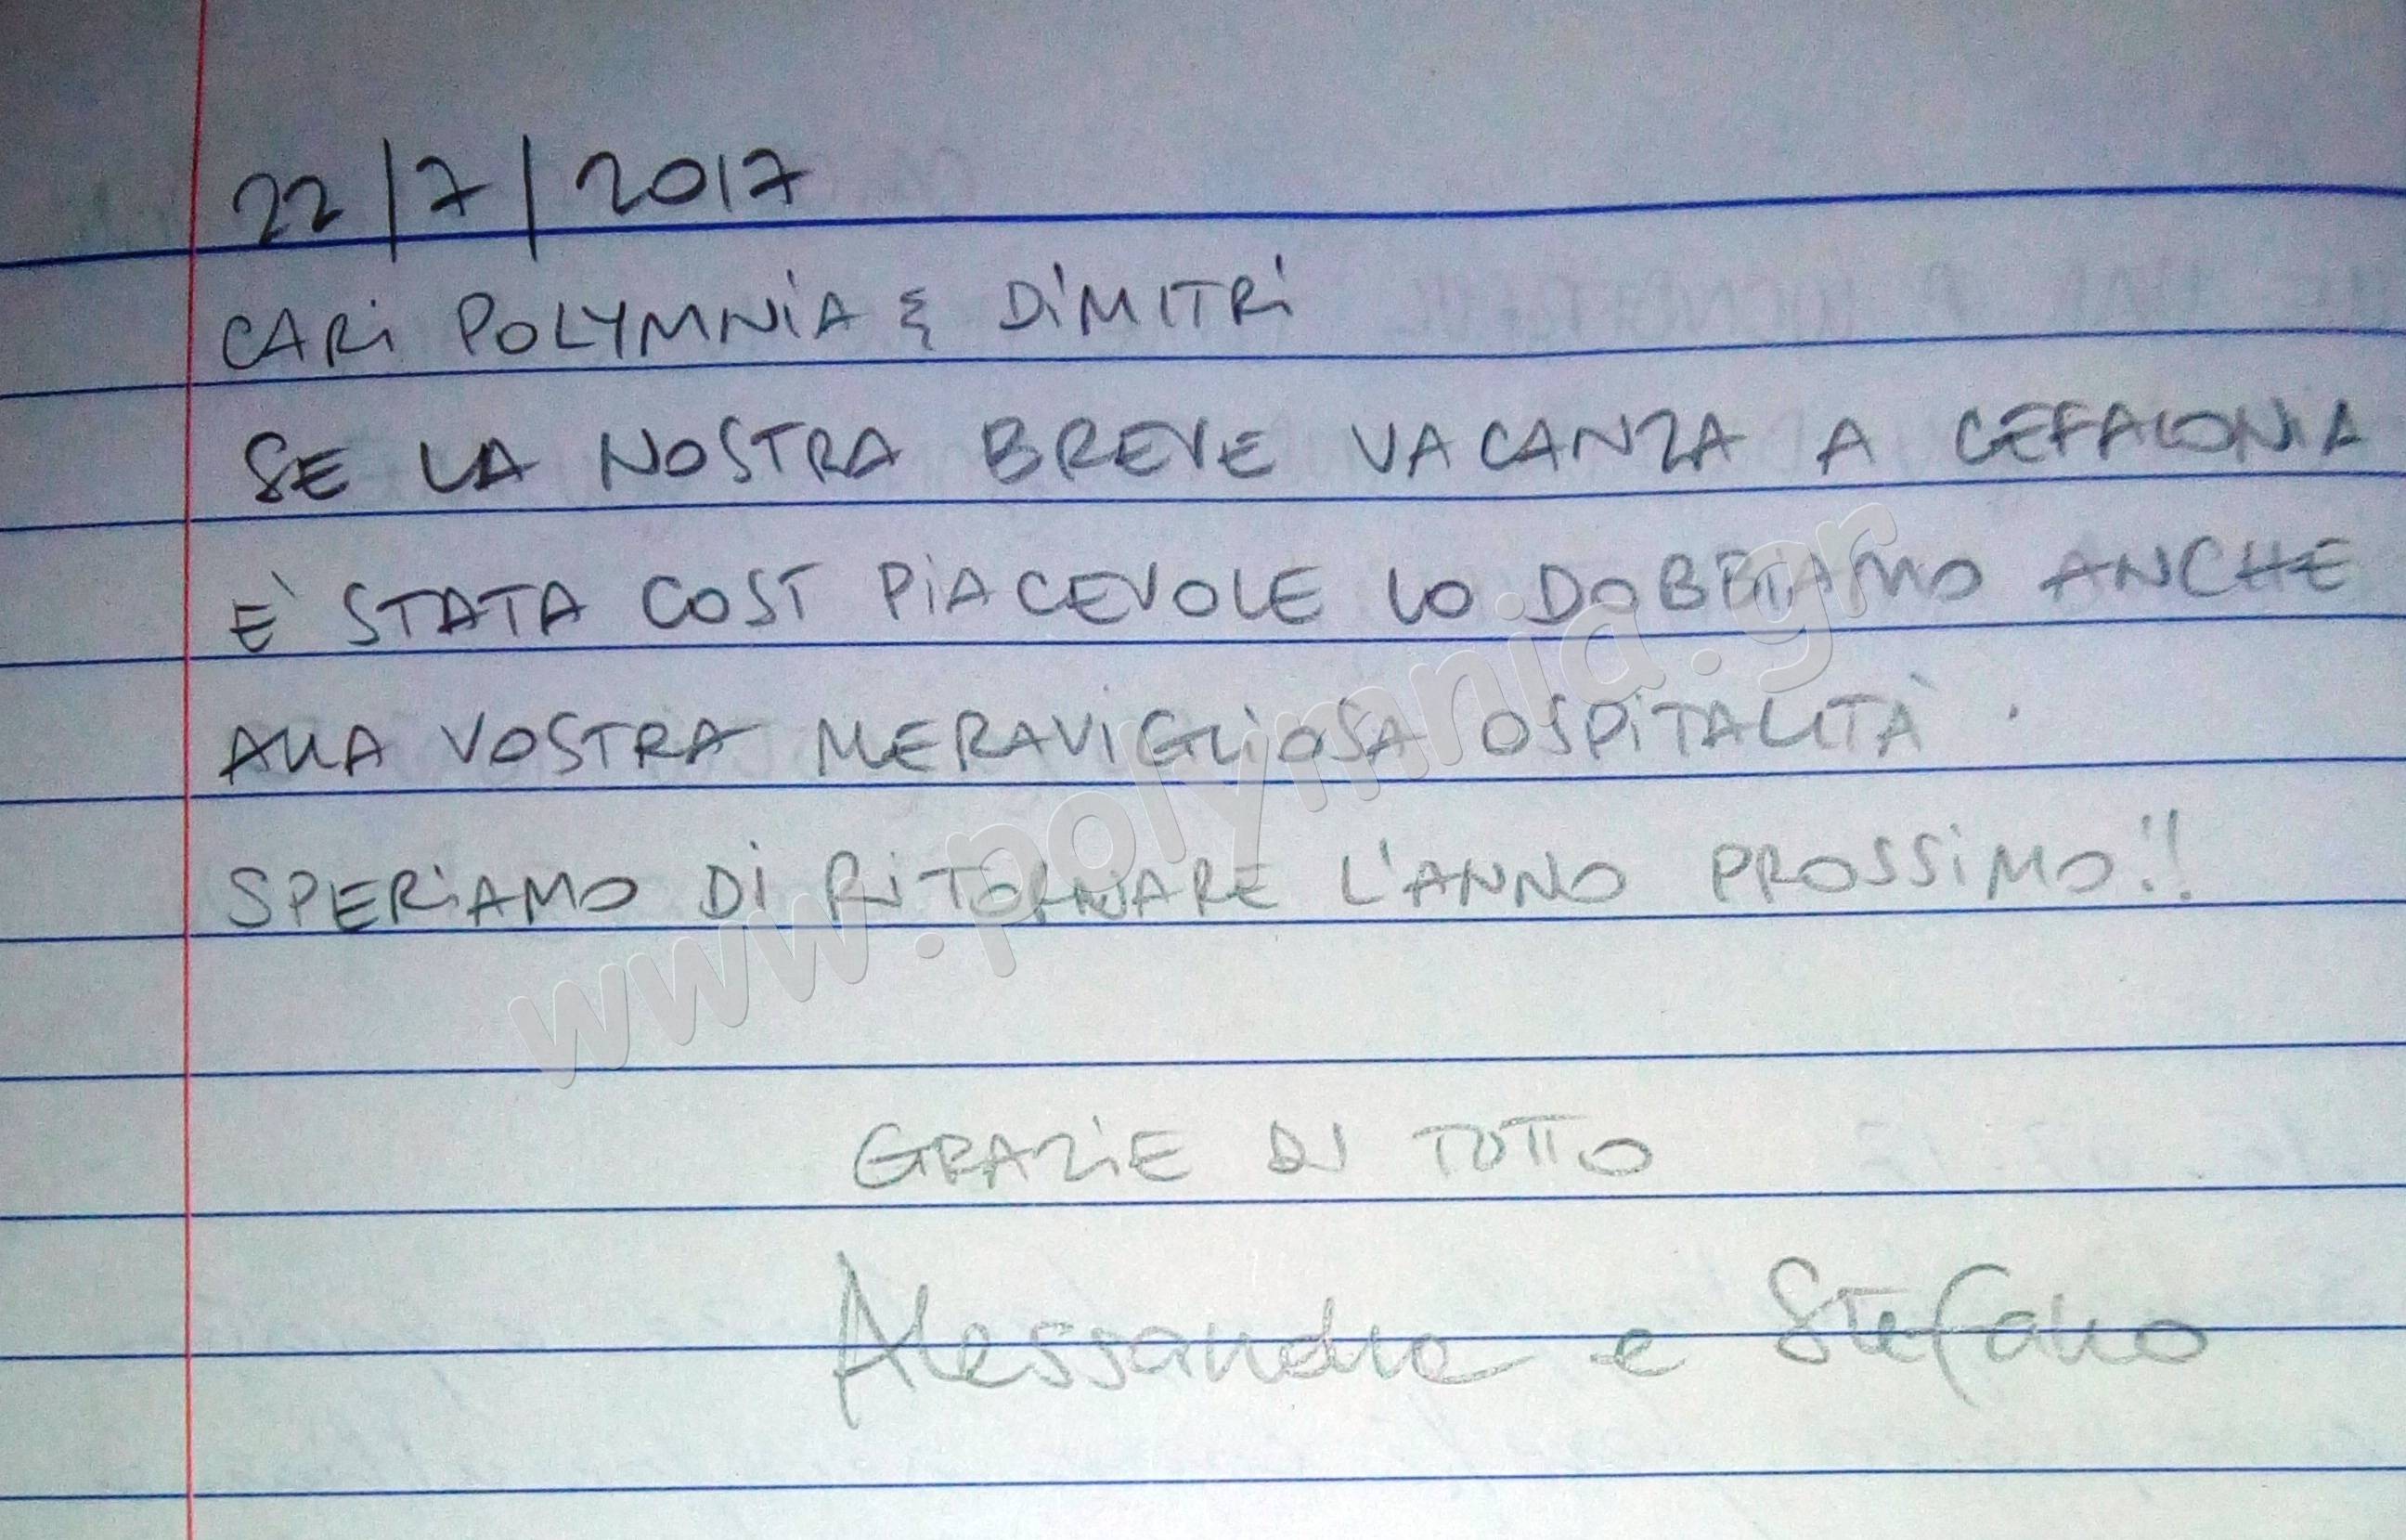 22/7/2017
CARI POLYMNIA & DIMITRI
SE LA NOSTRA BREVE VACANZA A CEFALONIA
E' STATA COSI PIACEVOLE LO DOBBIAMO ANCHE
ALLA VOSTRA MERAVIGLIOSA OSPITALITÀ.
SPERIAMO DI RITORNARE L'ANNO PROSSIMO!!
www.polymnia.gr
GRAZIE DI TUTTO
Alessandra e Stefano